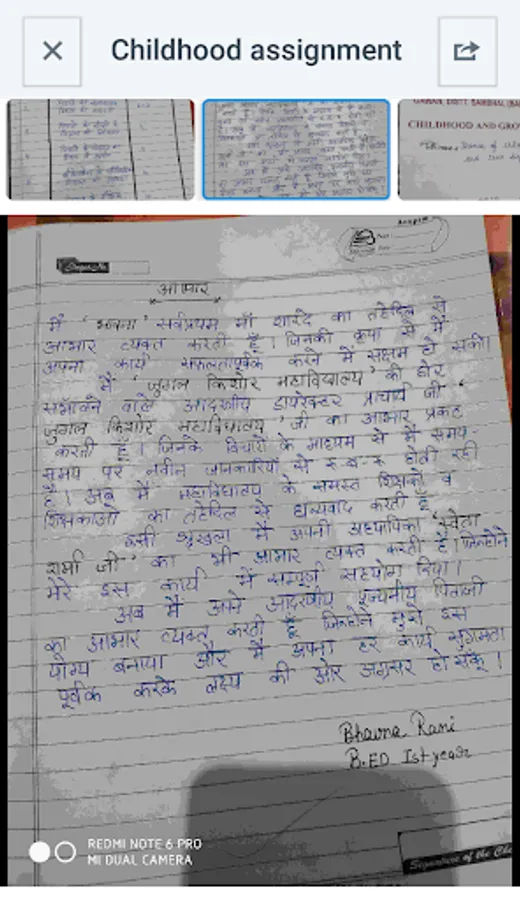 Childhood assignment
CHILDHOOD AND GRO
आभार
मैं 'भावना' सर्वप्रथम माँ शारदे का तहेदिल से
आभार व्यक्त करती हूँ। जिनकी कृपा से मैं
अपना कार्य सफलतापूर्वक करने में सक्षम हो सकी।
मैं 'जुगल किशोर महाविद्यालय' की डोर
संभालने वाले आदरणीय डायरेक्टर प्राचार्य जी '
जुगल किशोर महाविद्यालय' जी का आभार प्रकट
करती हूँ। जिनके विचारों के माध्यम से मैं समय-
समय पर नवीन जानकारियों से रू-ब-रू होती रही
हूँ। अब मैं महाविद्यालय के समस्त शिक्षकों व
शिक्षिकाओं का तहेदिल से धन्यवाद करती हूँ
इसी श्रृंखला में अपनी अध्यापिका 'स्वेता
शर्मा जी' का भी आभार व्यक्त करती हूँ। जिन्होंने
मेरे इस कार्य में सम्पूर्ण सहयोग दिया।
अब मैं अपने आदरणीय पूज्यनीय पिताजी
का आभार व्यक्त करती हूँ जिन्होंने मुझे इस
योग्य बनाया और मैं अपना हर कार्य सुगमता
पूर्वक करके लक्ष्य की ओर अग्रसर हो सकूँ।
Bhavna Rani
B.ED Ist year
REDMI NOTE 6 PRO
MI DUAL CAMERA
Signature of the